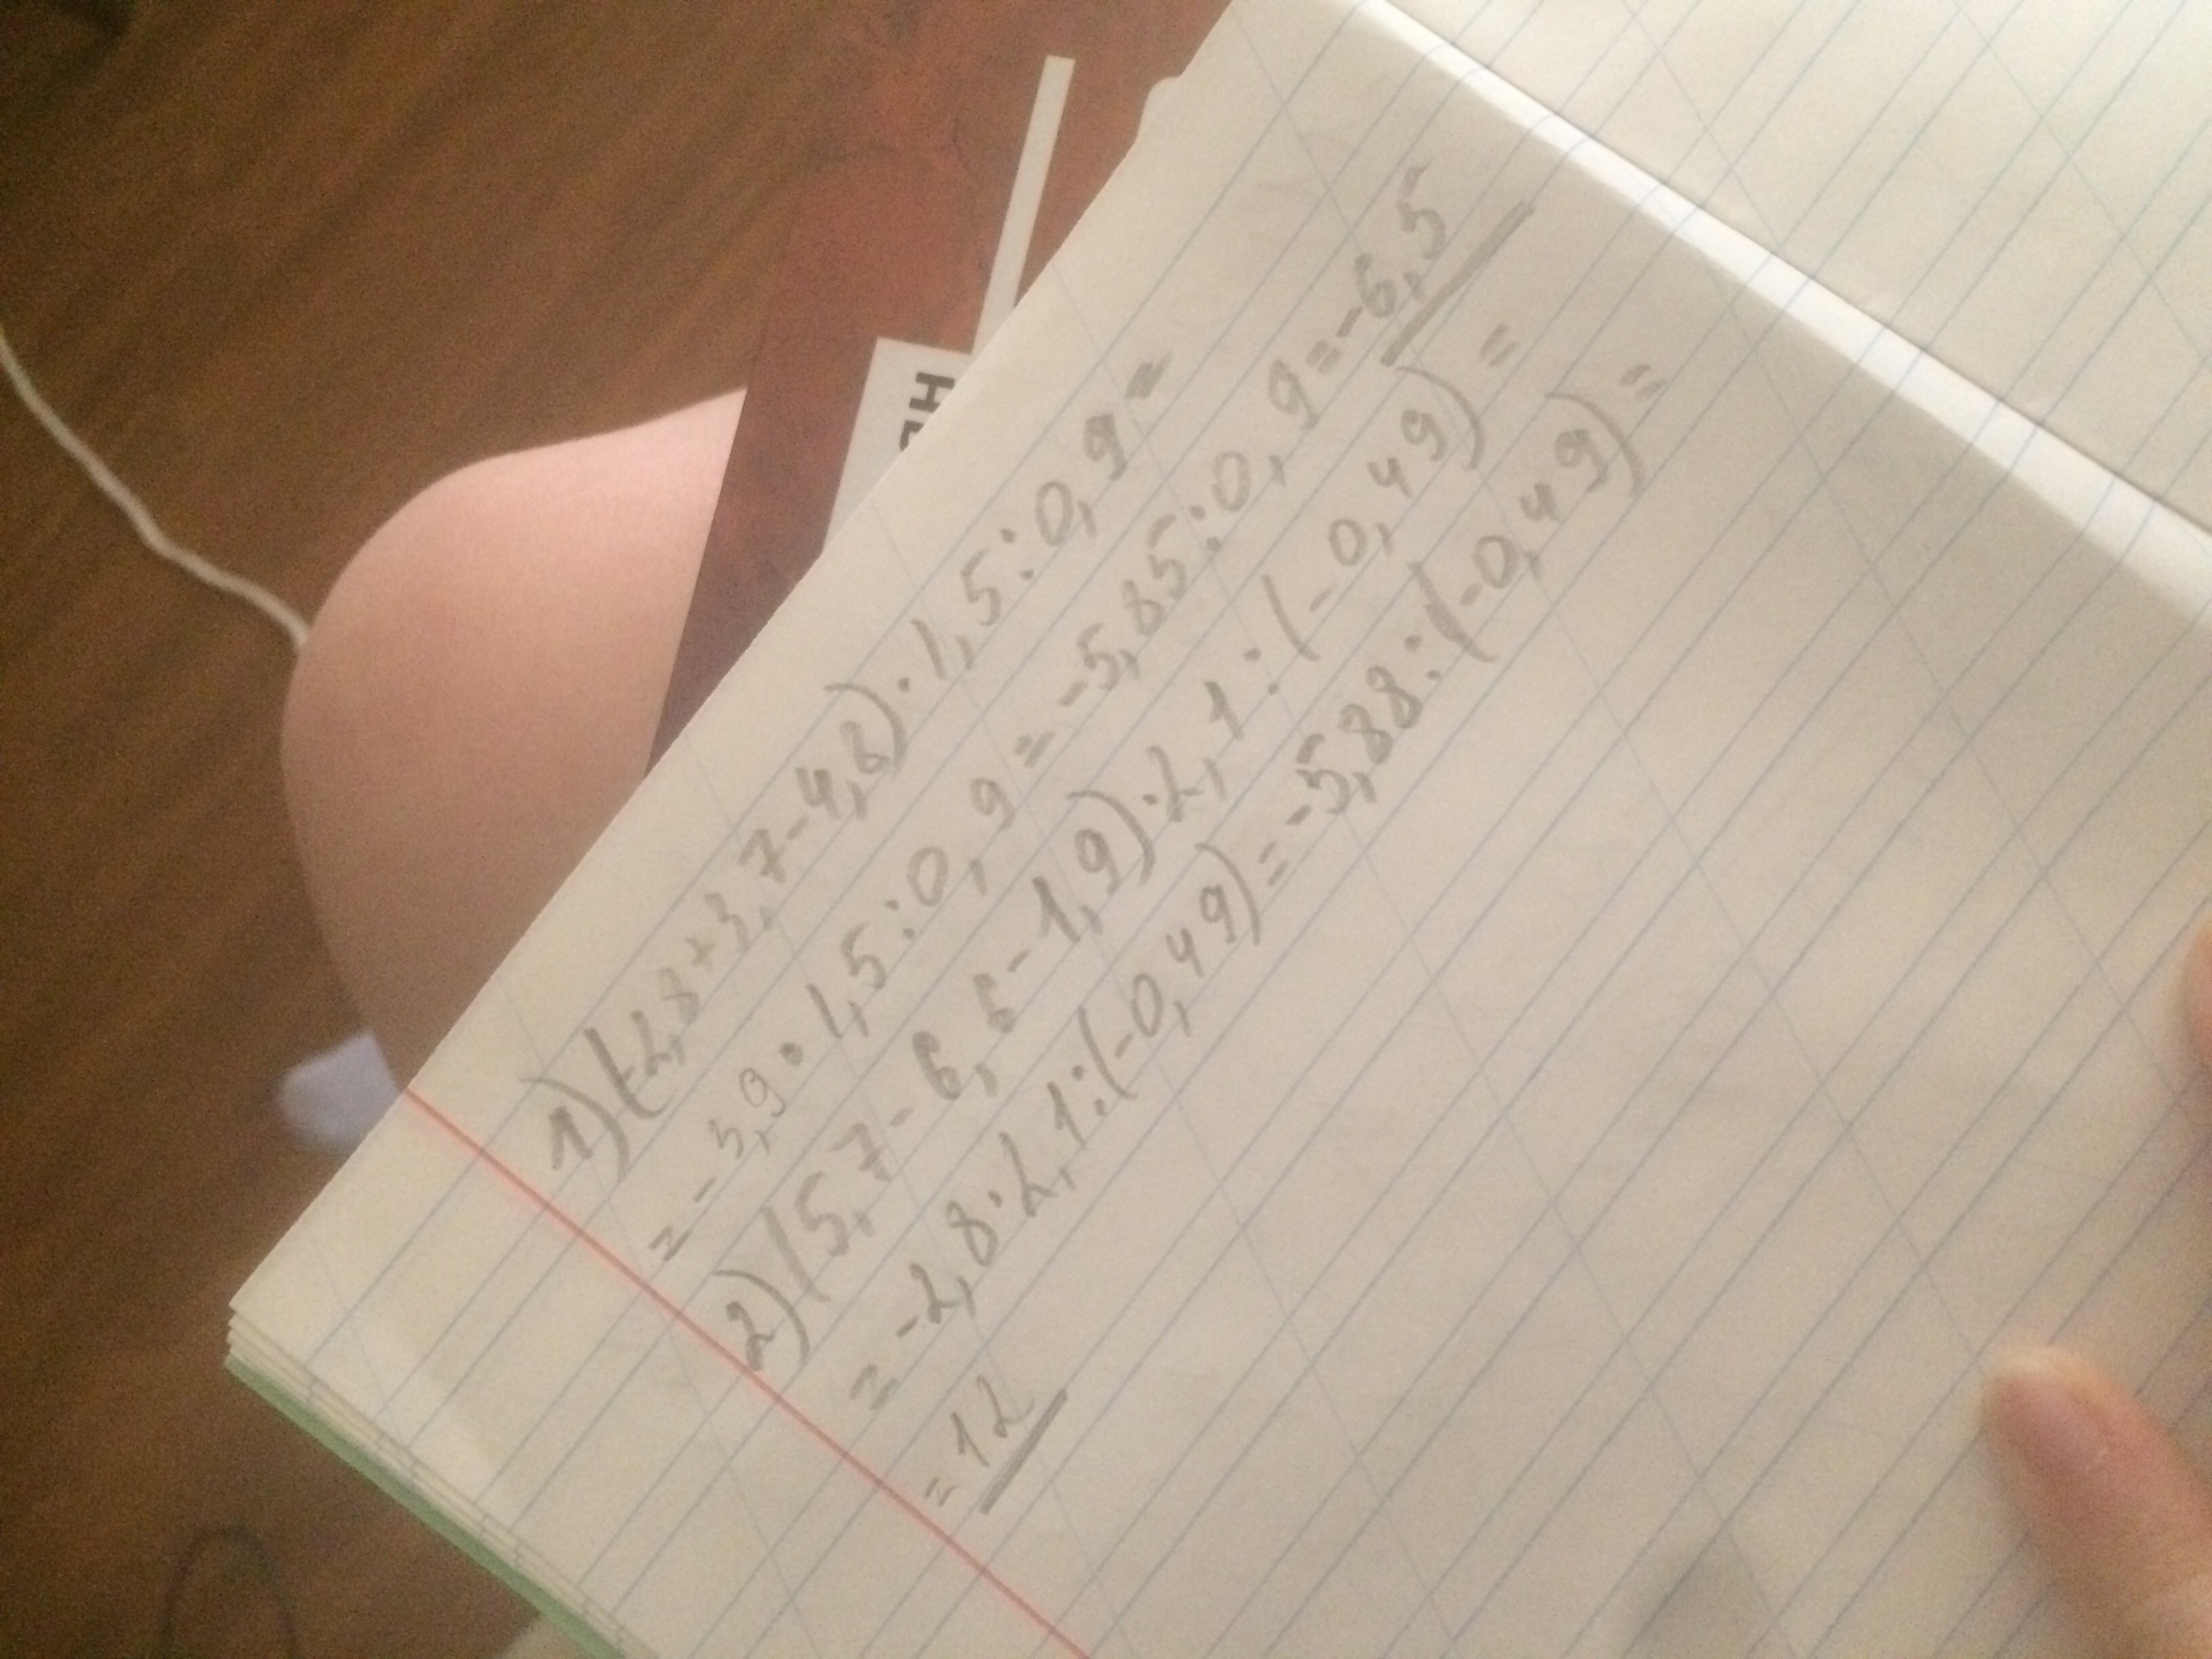 1) (-2,8+3,7-4,8)·1,5:0,9=
= -3,9·1,5:0,9=-5,85:0,9=-6,5
2) (5,7-6,6-1,9)·2,1:(-0,49)=
= -2,8·2,1:(-0,49)=-5,88:(-0,49)=
=12